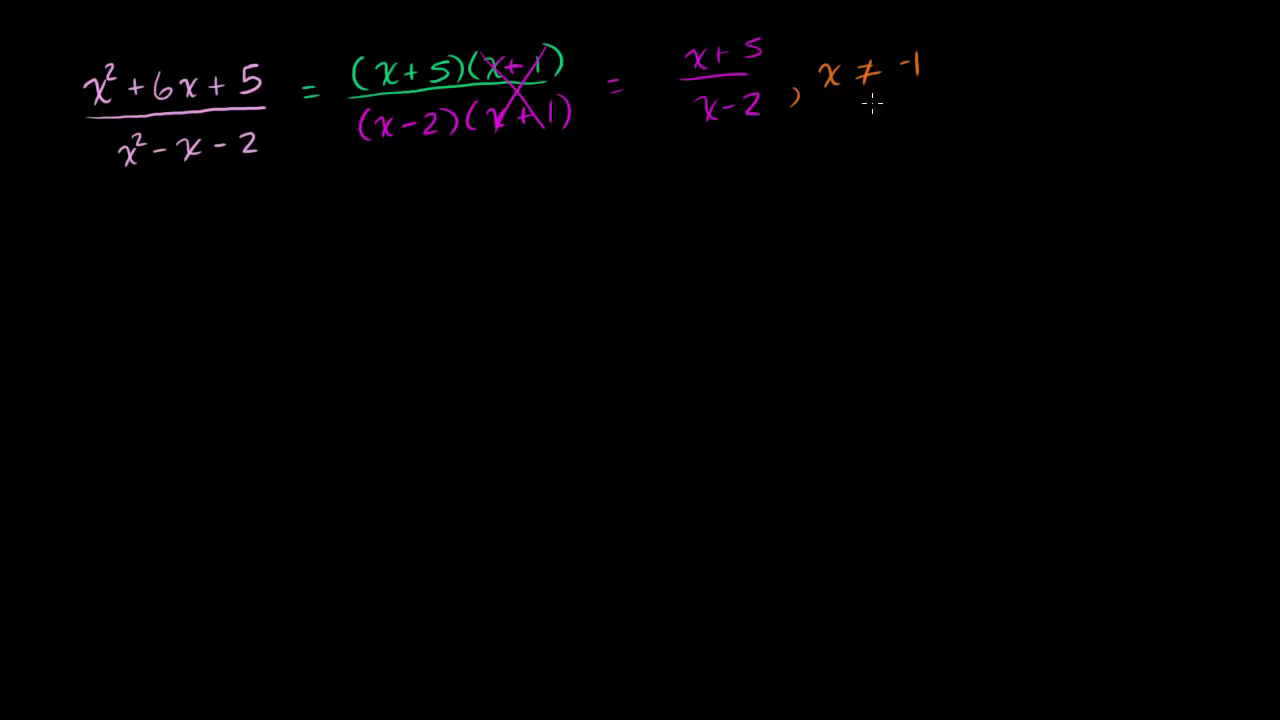 x² + 6x + 5 / x² - x - 2 = (x + 5)(x + 1) / (x - 2)(x + 1) = x + 5 / x - 2 , x ≠ -1